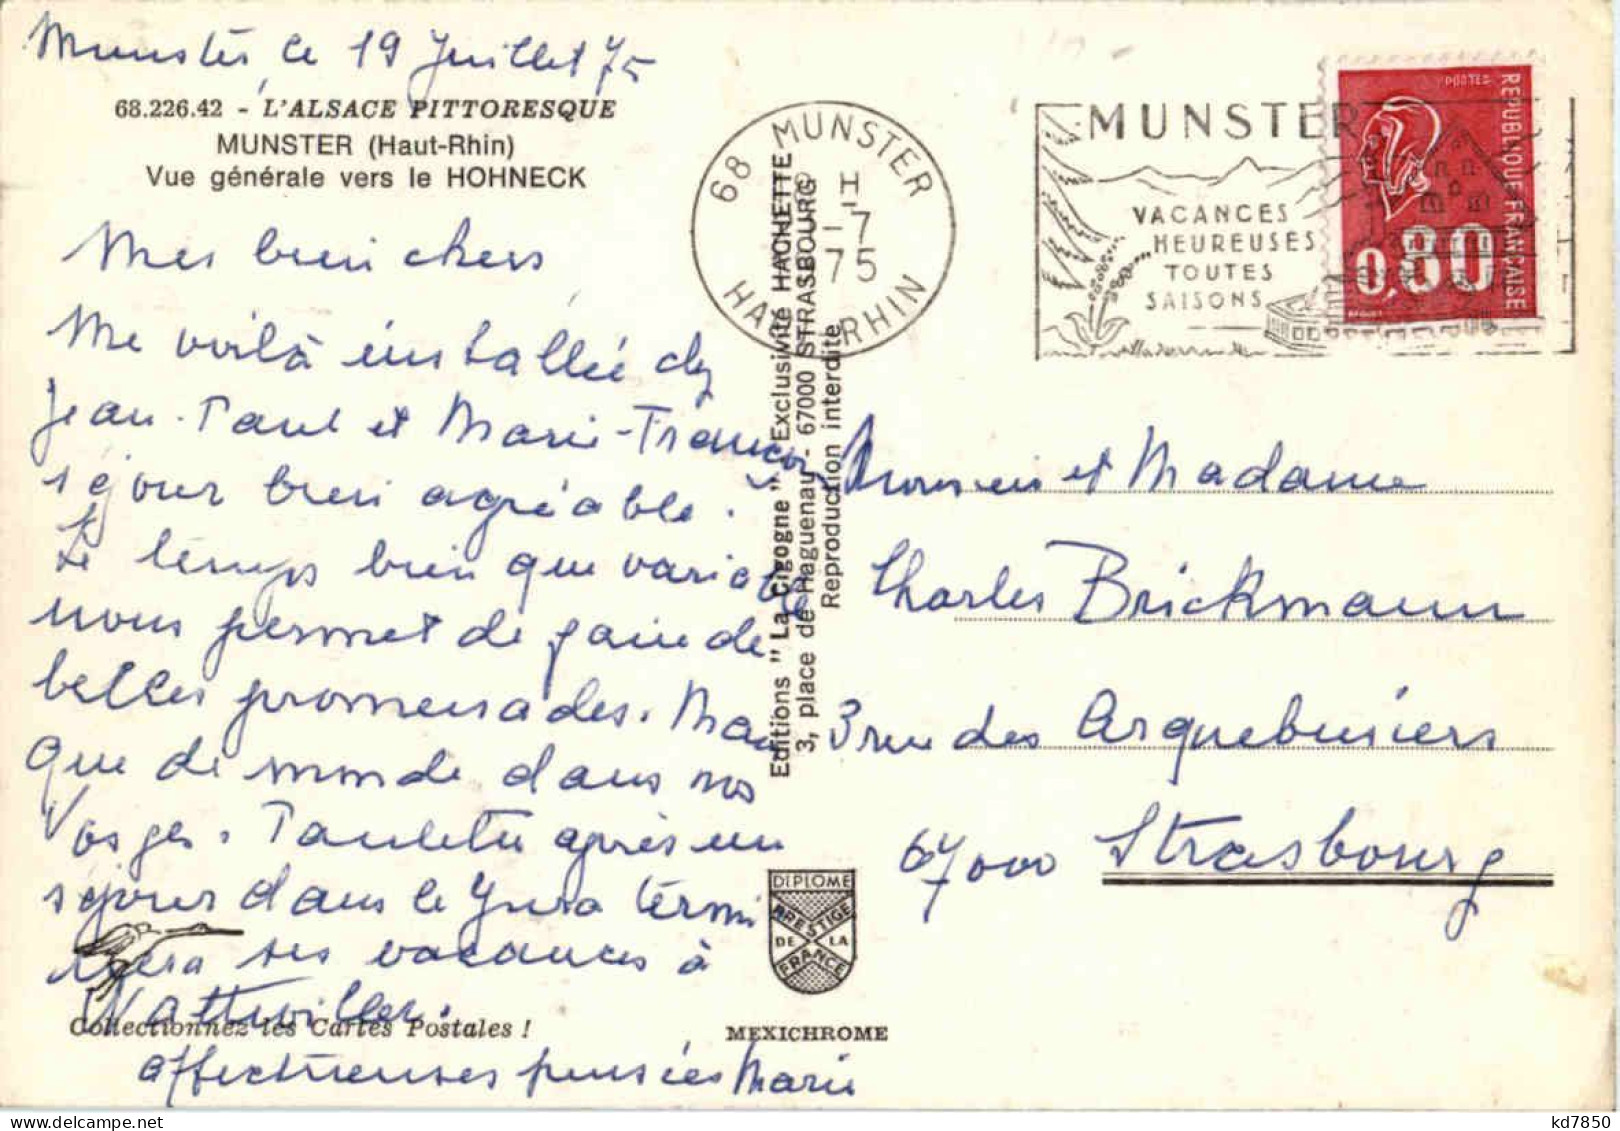 Munster, le 19 Juillet 75
68.226.42 - L'ALSACE PITTORESQUE
MUNSTER (Haut-Rhin)
Vue générale vers le HOHNECK
Mes bien chers
Me voilà installée chez
Jean-Paul et Marie-France,
séjour bien agréable.
Le temps bien que variable
nous permet de faire de
belles promenades. Mais
que de monde dans nos
Vosges. Paulette après un
séjour dans le Jura termi
nera ses vacances à
Wattwiller.
Collectionnez les Cartes Postales !
affectueuses pensées Marie
68 MUNSTER
H
-7
75
HAUT RHIN
MUNSTER
VACANCES
HEUREUSES
TOUTES
SAISONS
POSTES
REPUBLIQUE FRANÇAISE
0,80
Editions "La Cigogne" - Exclusivité HACHETTE
3, place de Haguenau - 67000 STRASBOURG
Reproduction interdite
Monsieur et Madame
Charles Brickmann
3 rue des Arquebusiers
67000 Strasbourg
DIPLOME
PRESTIGE
DE LA
FRANCE
MEXICHROME
kd7850